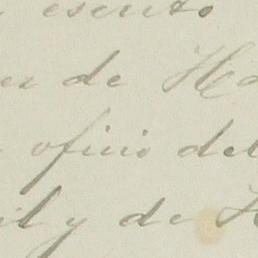 escrito
er de Ha
oficio del
il y de H